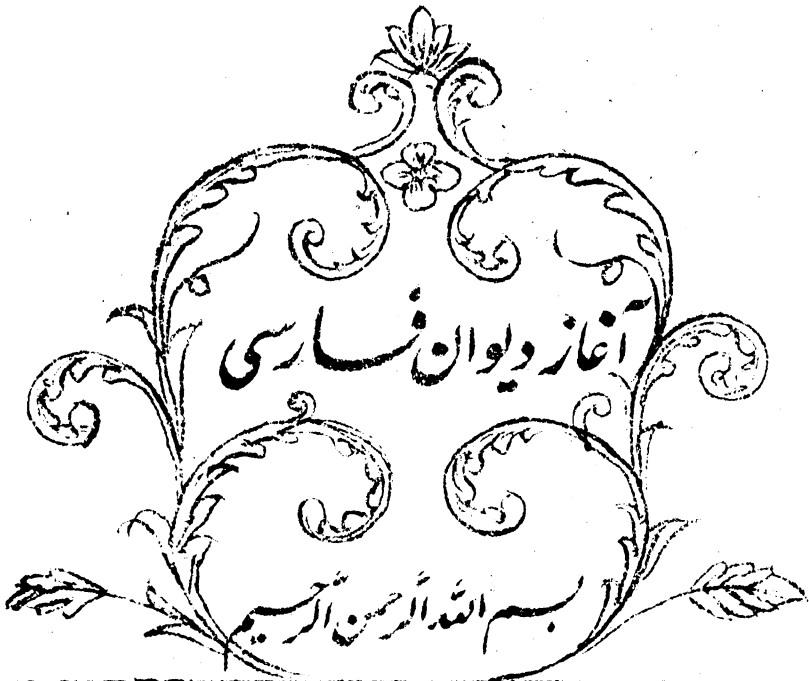 آغاز دیوان فارسی
بسم الله الرحمن الرحیم